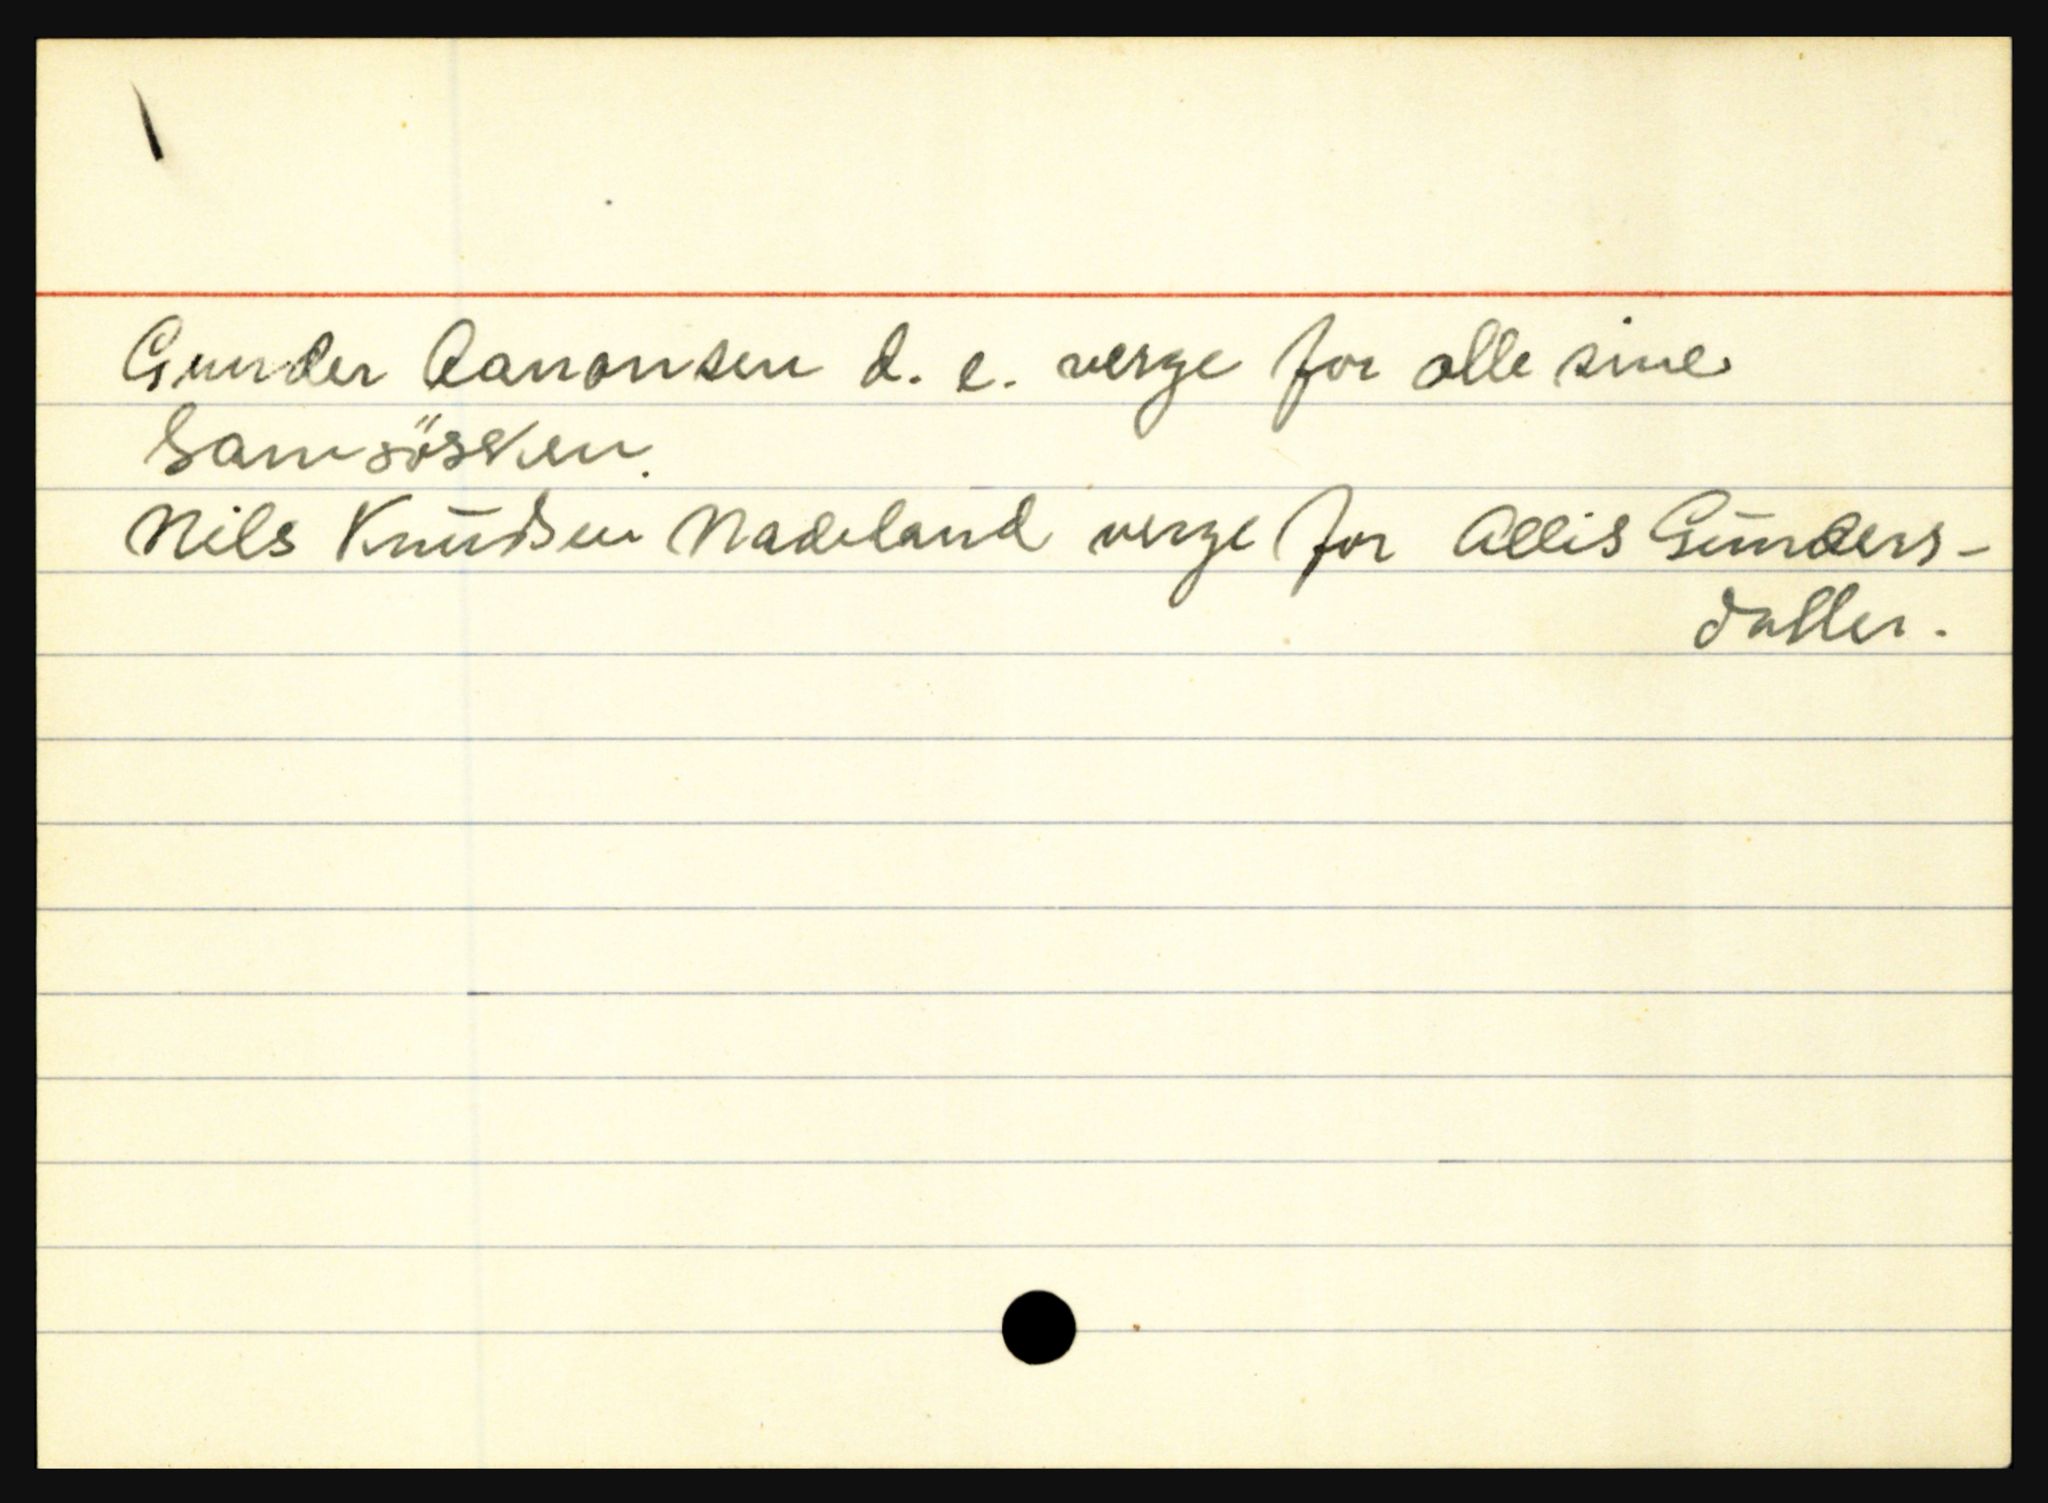 Gunder Aanonsen d. e. verge for alle sine
Samsösken.
Nils Knudsen Nadeland verge for Allis Gunders-
datter.